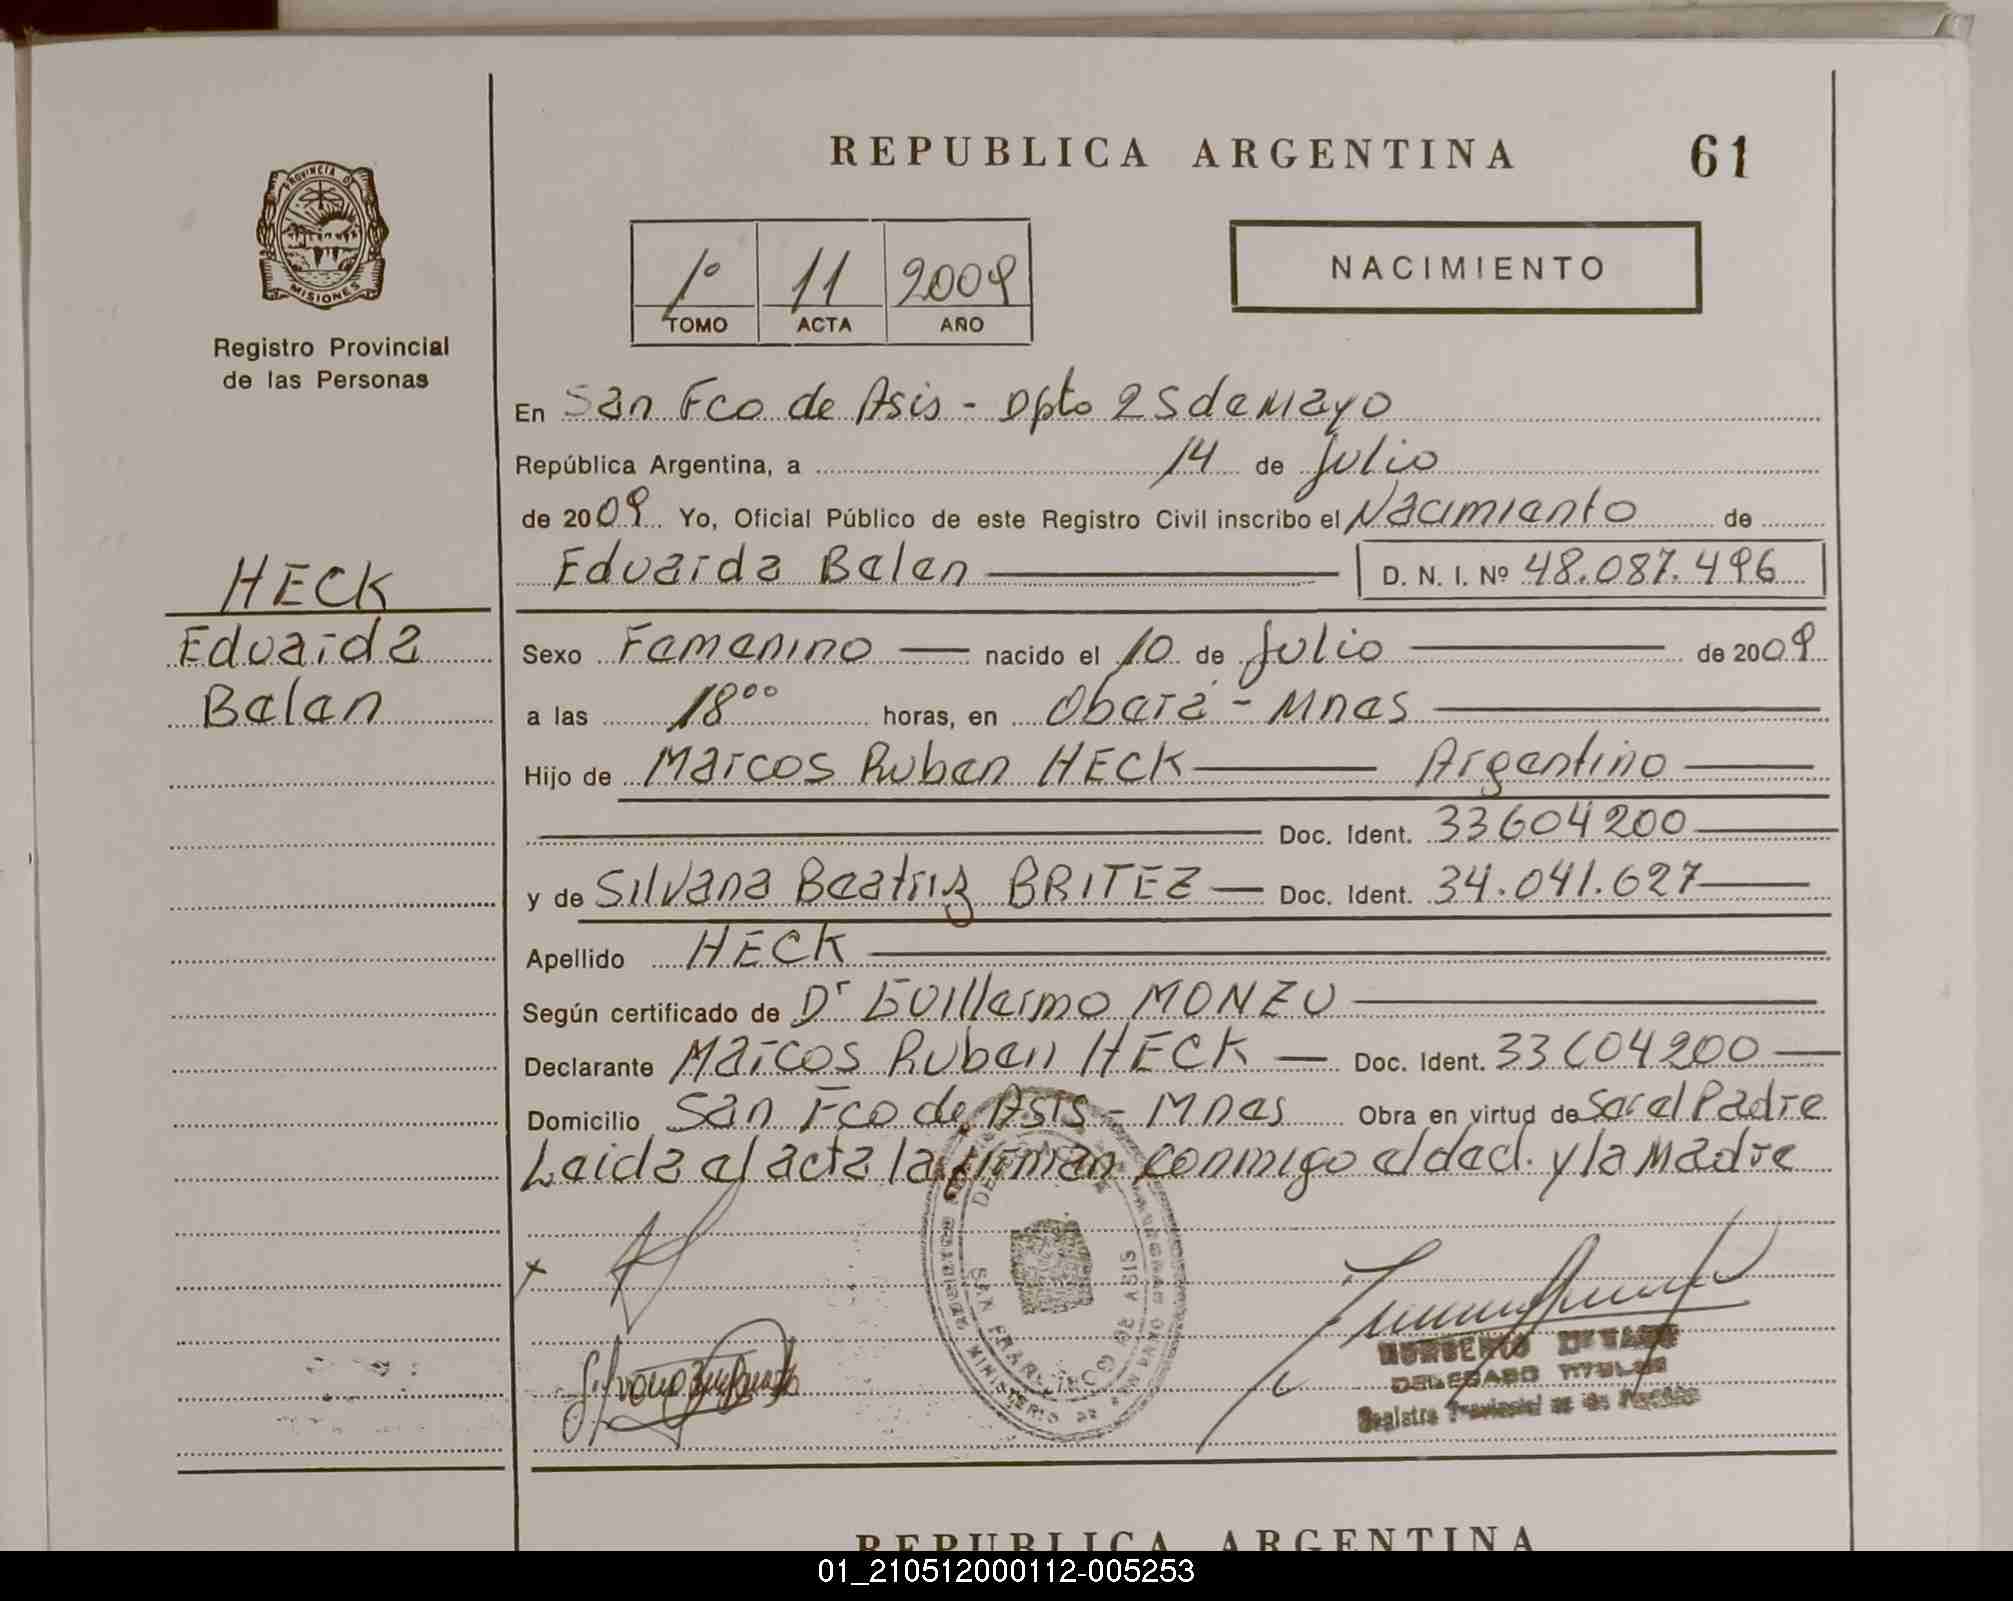 REPUBLICA ARGENTINA
61
PROVINCIA DE
MISIONES
Registro Provincial
de las Personas
1º 11 2009
TOMO ACTA AÑO
NACIMIENTO
En San Fco de Asis - Dpto 25 de Mayo
República Argentina, a 14 de Julio
de 2009 Yo, Oficial Público de este Registro Civil inscribo el Nacimiento de
Eduarda Belen D. N. I. Nº 48.087.496
HECK
Eduarda
Belen
Sexo Femenino nacido el 10 de Julio de 2009
a las 18⁰⁰ horas, en Oberá - Mnes
Hijo de Marcos Ruben HECK Argentino
Doc. Ident. 33604200
y de Silvana Beatriz BRITEZ Doc. Ident. 34.041.627
Apellido HECK
Según certificado de Dr Guillermo MONZU
Declarante Marcos Ruben HECK Doc. Ident. 33604200
Domicilio San Fco de Asis - Mnes Obra en virtud de Ser el Padre
Leida el acta la firman conmigo el decl. y la Madre
SAN FRANCISCO DE ASIS
MINISTERIO DE
NORBERTO
DELEGADO TITULAR
Registro Provincial de las
REPUBLICA ARGENTINA
01_210512000112-005253